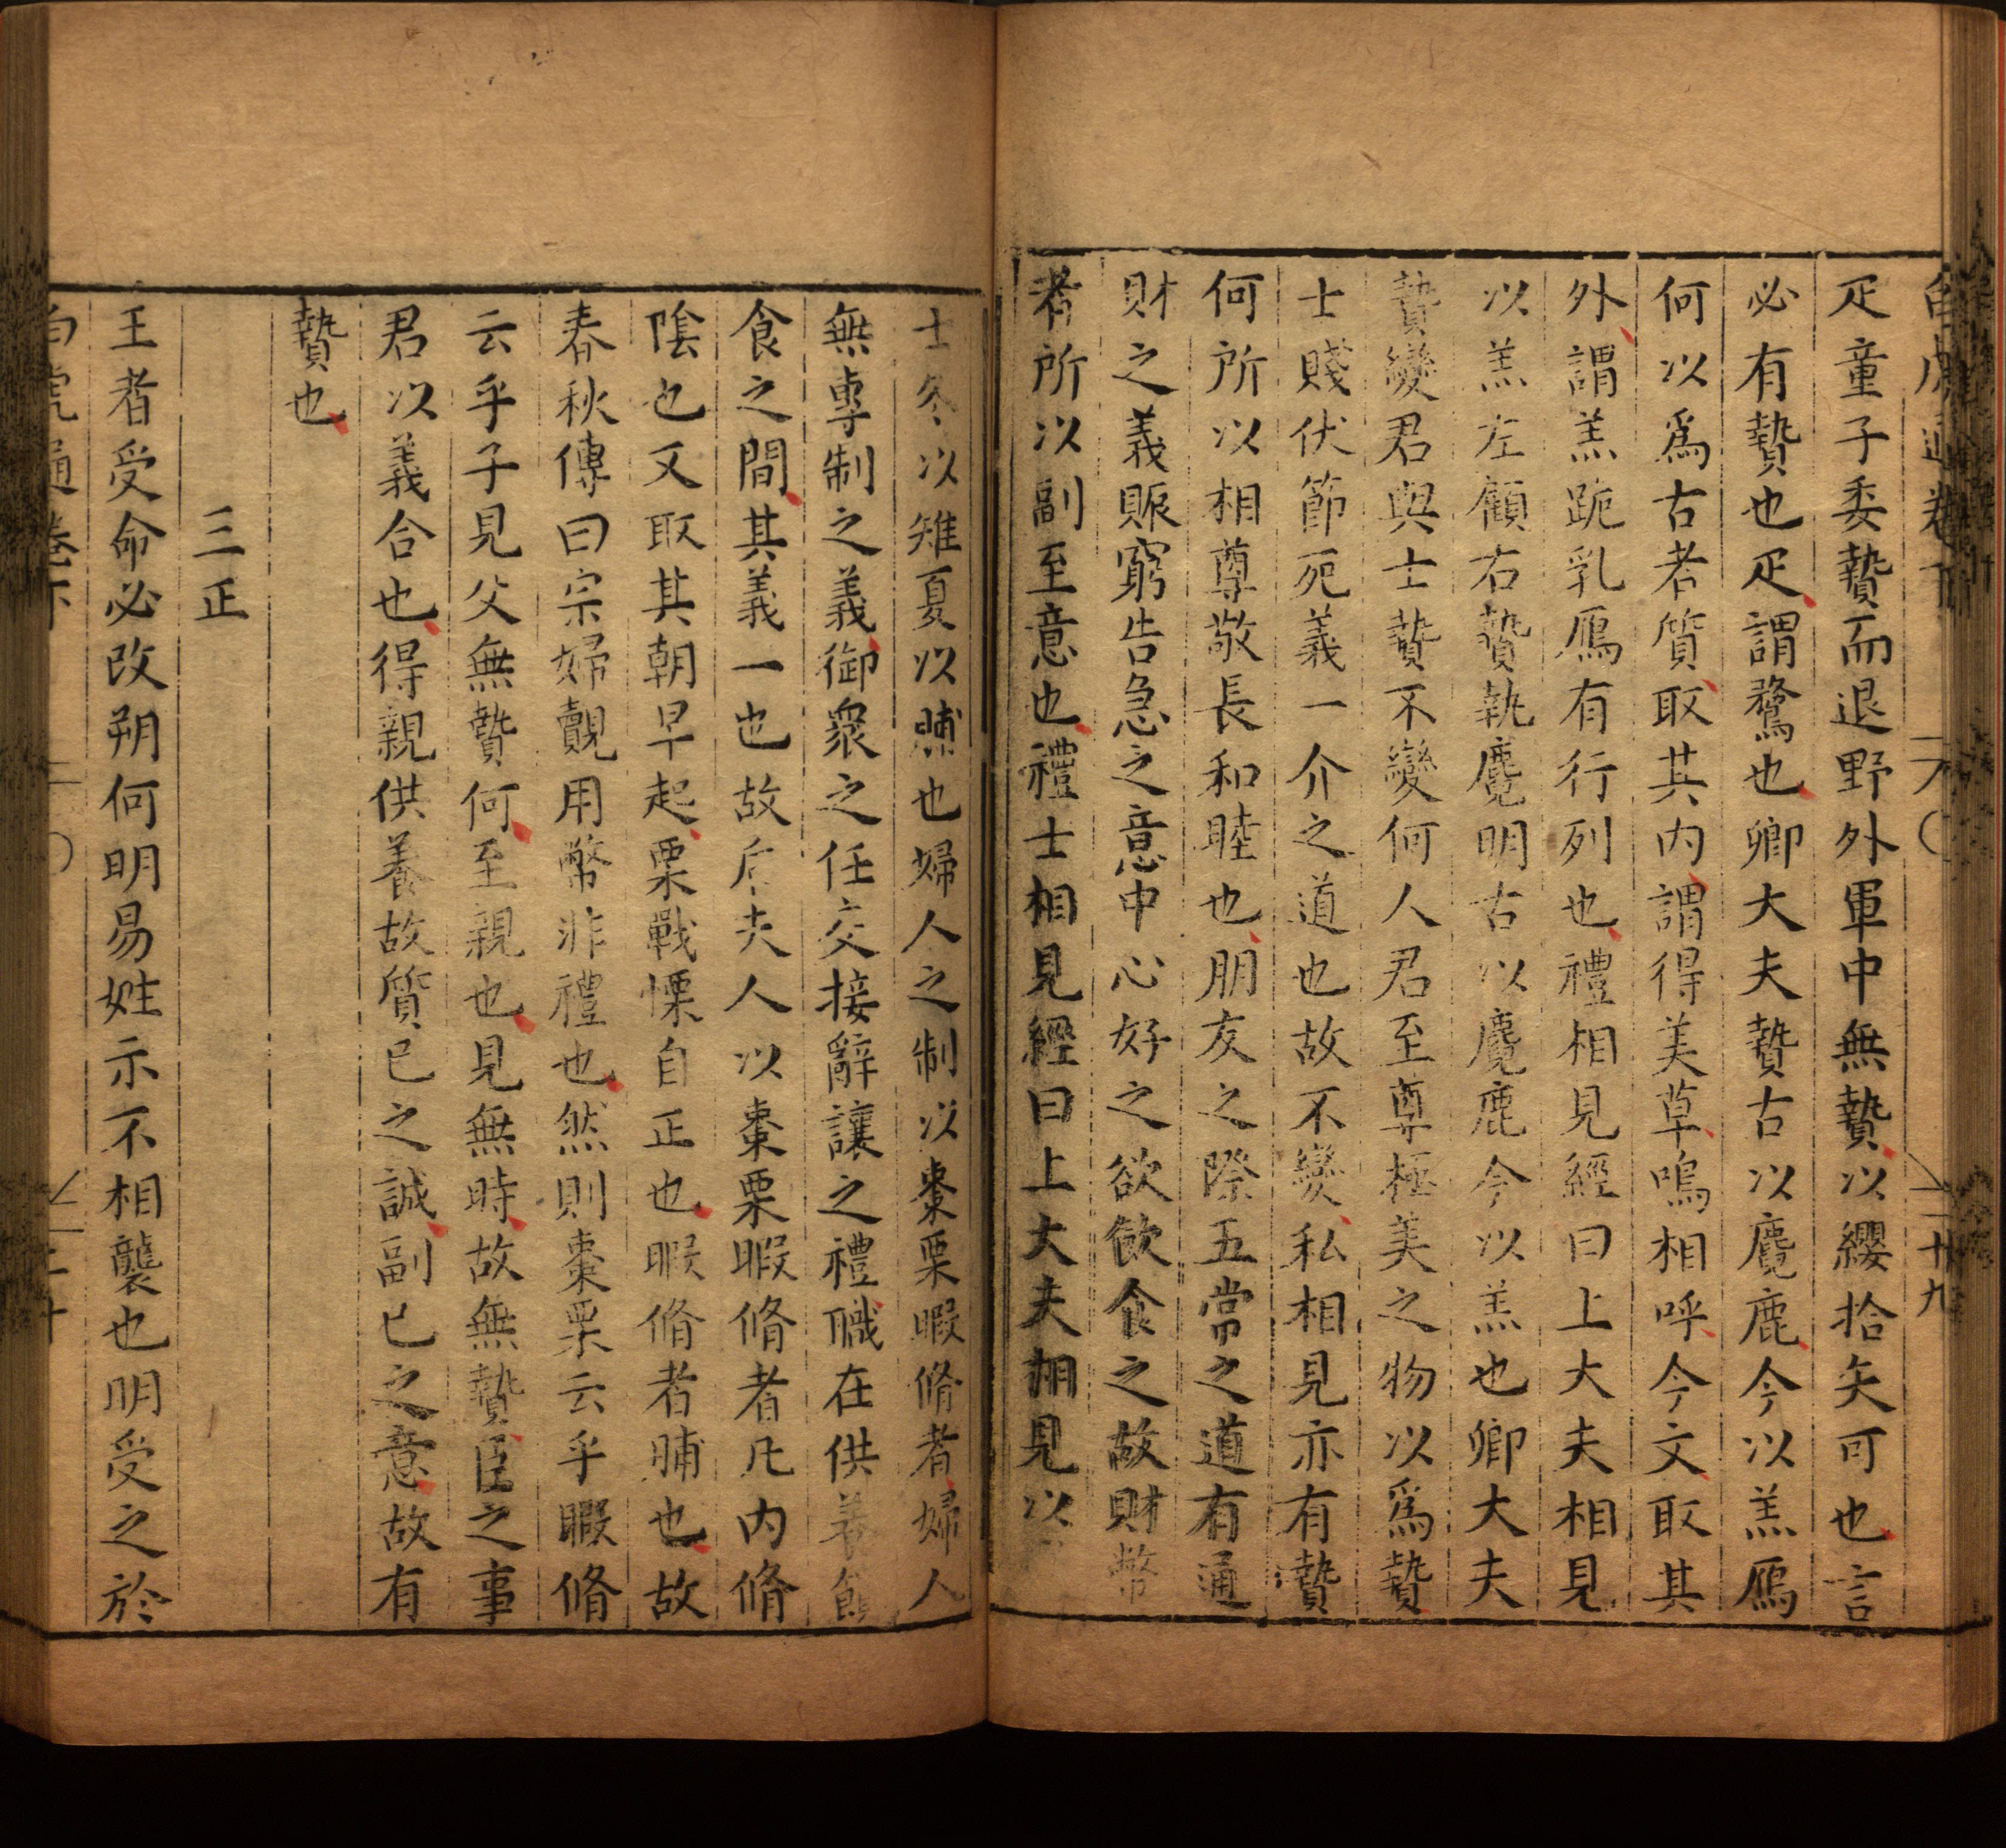 白虎通卷下 廿九
疋童子委贄而退野外軍中無贄以纓拾矢可也言
必有贄也疋謂鶩也卿大夫贄古以麑鹿今以羔鴈
何以爲古者質取其内謂得美草鳴相呼今文取其
外謂羔跪乳鴈有行列也禮相見經曰上大夫相見
以羔左顧右贄執麑明古以麑鹿今以羔也卿大夫
贄變君與士贄不變何人君至尊極美之物以爲贄
士賤伏節死義一介之道也故不變私相見亦有贄
何所以相尊敬長和睦也朋友之際五常之道有通
財之義賑窮告急之意中心好之欲飮食之故財幣
者所以副至意也禮士相見經曰上大夫相見以
士冬以雉夏以腒也婦人之制以棗栗腶脩者婦人
無專制之義御衆之任交接辭讓之禮職在供養餽
食之間其義一也故后夫人以棗栗腶脩者凡内脩
陰也又取其朝早起栗戰慄自正也腶脩者脯也故
春秋傳曰宗婦覿用幣非禮也然則棗栗云乎腶脩
云乎子見父無贄何至親也見無時故無贄臣之事
君以義合也得親供養故質已之誠副已之意故有
贄也
三正
王者受命必改朔何明易姓示不相襲也明受之於
白虎通卷下 三十